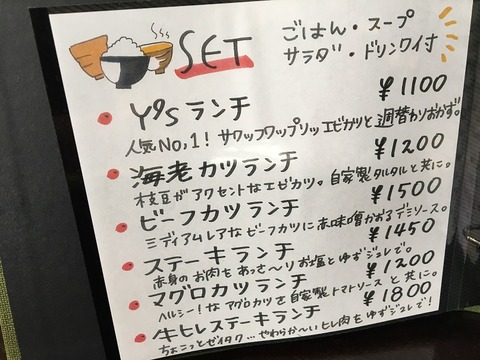 SET
ごはん・スープ
サラダ・ドリンク付
Y'sランチ ¥1100
人気No.1! サクッフワップリッエビカツと週替わりおかず。
海老カツランチ ¥1200
枝豆がアクセントなエビカツ。自家製タルタルと共に。
ビーフカツランチ ¥1500
ミディアムレアなビーフカツに赤味噌かおるデミソース。
ステーキランチ ¥1450
赤身のお肉をあっさ〜りお塩とゆずジュレで。
マグロカツランチ ¥1200
ヘルシー!なマグロカツを自家製トマトソースと共に。
牛ヒレステーキランチ ¥1800
ちょこっとゼイタク…やわらか〜いヒレ肉をゆずジュレで!